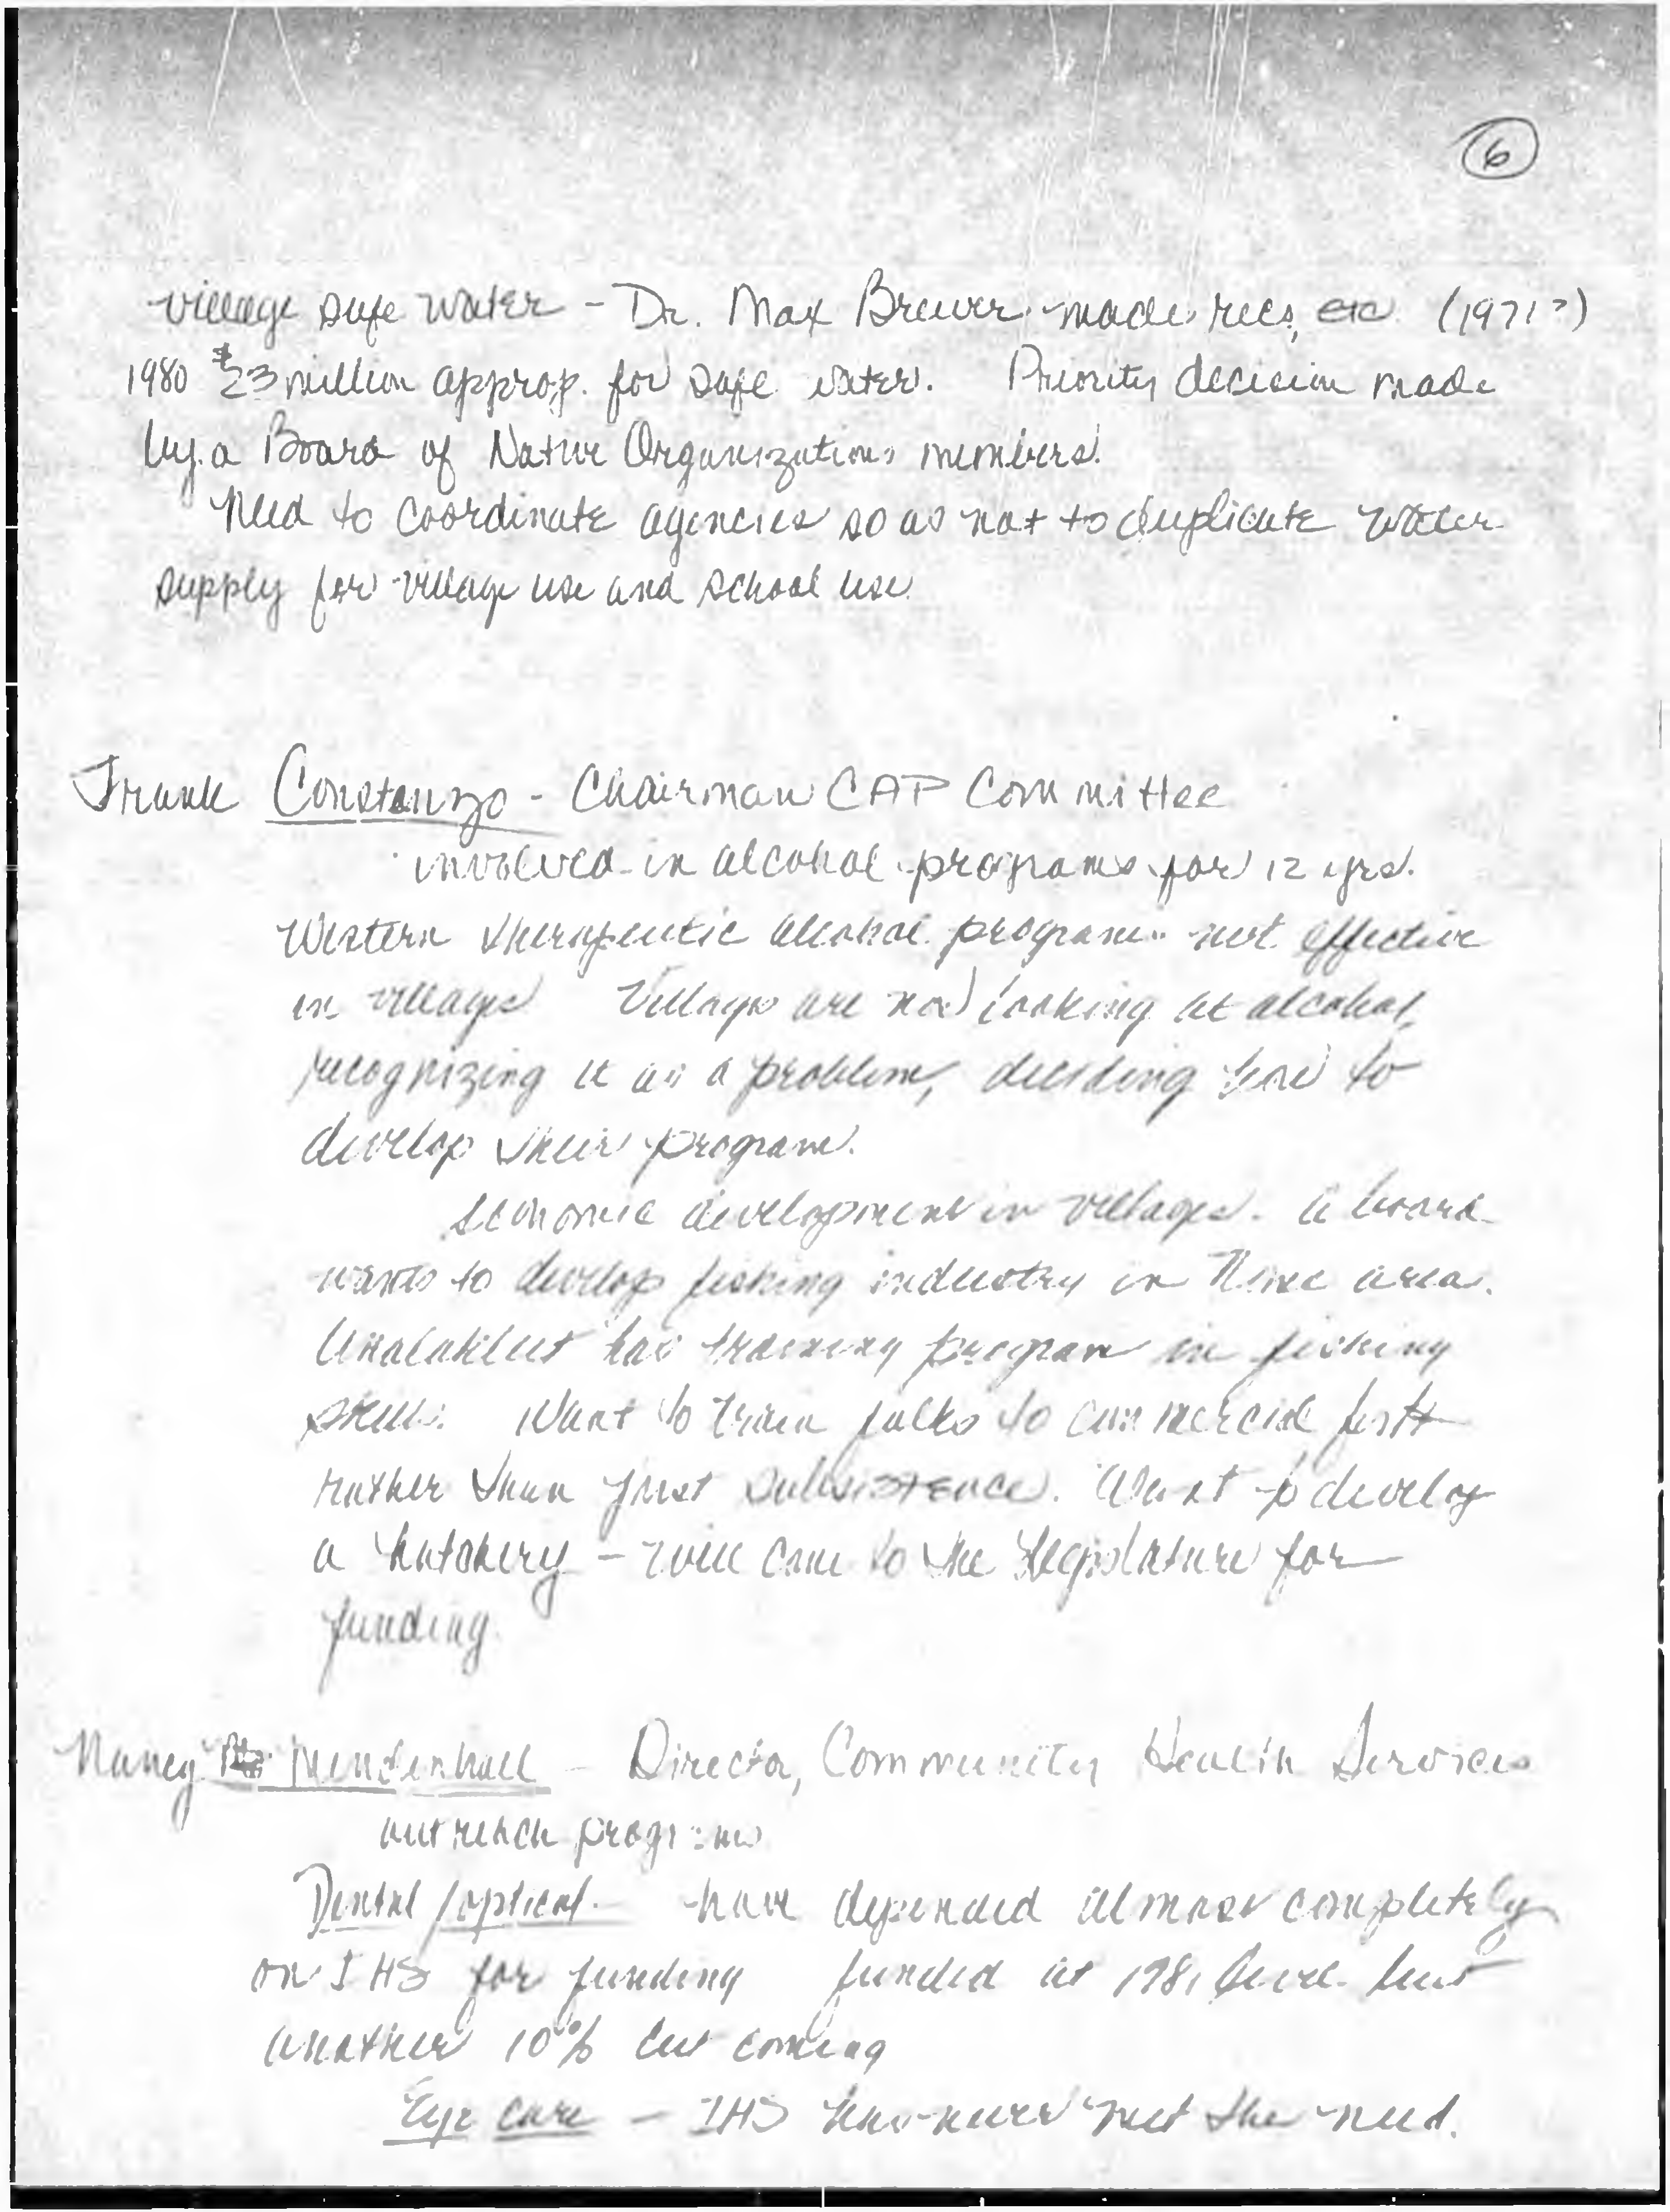 6
Village safe water - Dr. Max Brewer made recs, etc (1971?)
1980 $23 million approp. for safe water. Priority decision made
by a Board of Native Organizations members.
Need to coordinate agencies so as not to duplicate water
supply for village use and school use.
Frank Constanzo - Chairman CAP Committee
involved in alcohol programs for 12 yrs.
Western therapeutic alcohol programs not effective
in villages Villages are now looking at alcohol,
recognizing it as a problem, deciding how to
develop their program.
Economic development in villages. A board
wants to develop fishing industry in Nome area.
Unalakleet has training program in fishing
skills. Want to train folks to commercial fish
rather than just subsistence. Want to develop
a hatchery - will come to the Legislature for
funding.
Nancy Mendenhall - Director, Community Health Services
outreach programs
Dental/optical - have depended almost completely
on IHS for funding funded at 1981 level but
another 10% cut coming
Eye care - IHS has never met the need.